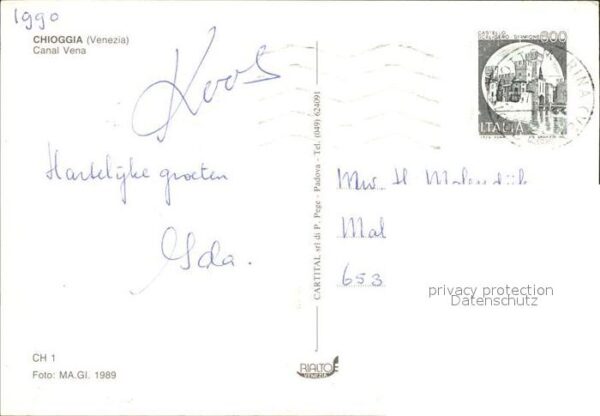 1990
CHIOGGIA (Venezia)
Canal Vena
Koos
Hartelijke groeten
Ida.
CH 1
Foto: MA.GI. 1989
CARTITAL srl di P. Pege - Padova - Tel. (049) 624091
RIALTO
VENEZIA
CASTELLO
SCALIGERO SIRMIONE
800
ITALIA
Mw. H
Mal
653
privacy protection
Datenschutz